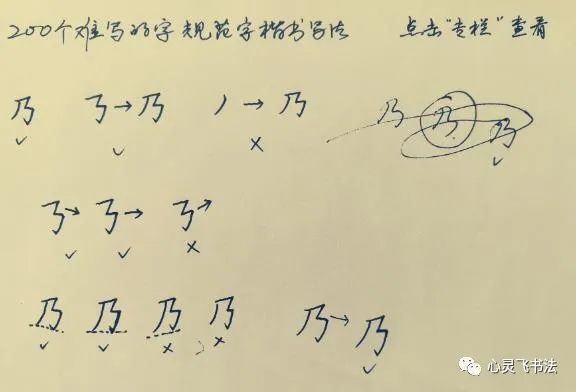 200个难写的字规范字楷书写法 点击“专栏”查看
乃 乛→乃 丿→乃 乃 乃 乃
✓ ✓ × ✓
→ → →
✓ ✓ ×
乃 乃 乃 乃 乃→乃
✓ ✓ × × ✓
心灵飞书法